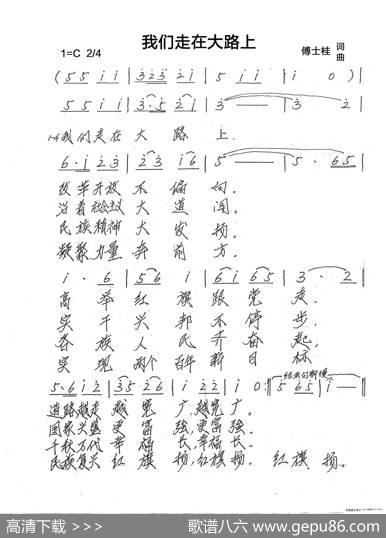 我们走在大路上
1=C 2/4
傅士桂 词曲
( 5 5 i i | 3 2 3 2 i | 5 i i | i 0 )
5 5 i i | 3·5 2 i | 3 — | 3 2 |
1-4我们走在大路上
6·i 2 3 | 2 3 i 6 | 5 — | 5·6 5 |
改革开放不偏向。
沿着 大道闯。
民族精神大发扬。
凝聚力量奔前方。
i·6 | 5 6 | 6 i 6 5 | 3·2 |
高举红旗跟党走,
实干兴邦不停步,
各族人民齐奋起,
实现两个百年新目标
结束句渐慢
5·6 i 2 | 3 5 2 6 | i 2 2 | i 0 :| 5 6 5 | i — |
道路越走越宽广,越宽广。
国家兴盛更富强,更富强。
千秋万代幸福长,幸福长。
民族复兴红旗扬,红旗扬。 红旗扬。
高清下载 >>>
歌谱八六 www.gepu86.com